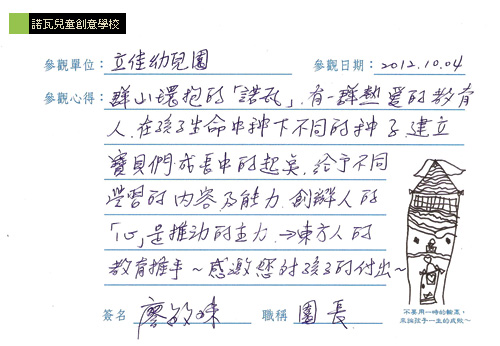 諾瓦兒童創意學校
參觀單位：立佳幼兒園 參觀日期：2012.10.04
參觀心得：群山環抱的「諾瓦」,有一群熱愛的教育
人,在孩子生命中种下不同的种子,建立
寶貝們成長中的起点,給予不同
學習的內容及能力,創辦人的
「心」是推动的主力,→東方人的
教育推手~感激您对孩子的付出~
簽名 廖敏 職稱 園長
不要用一時的輸贏，
來論孩子一生的成敗～